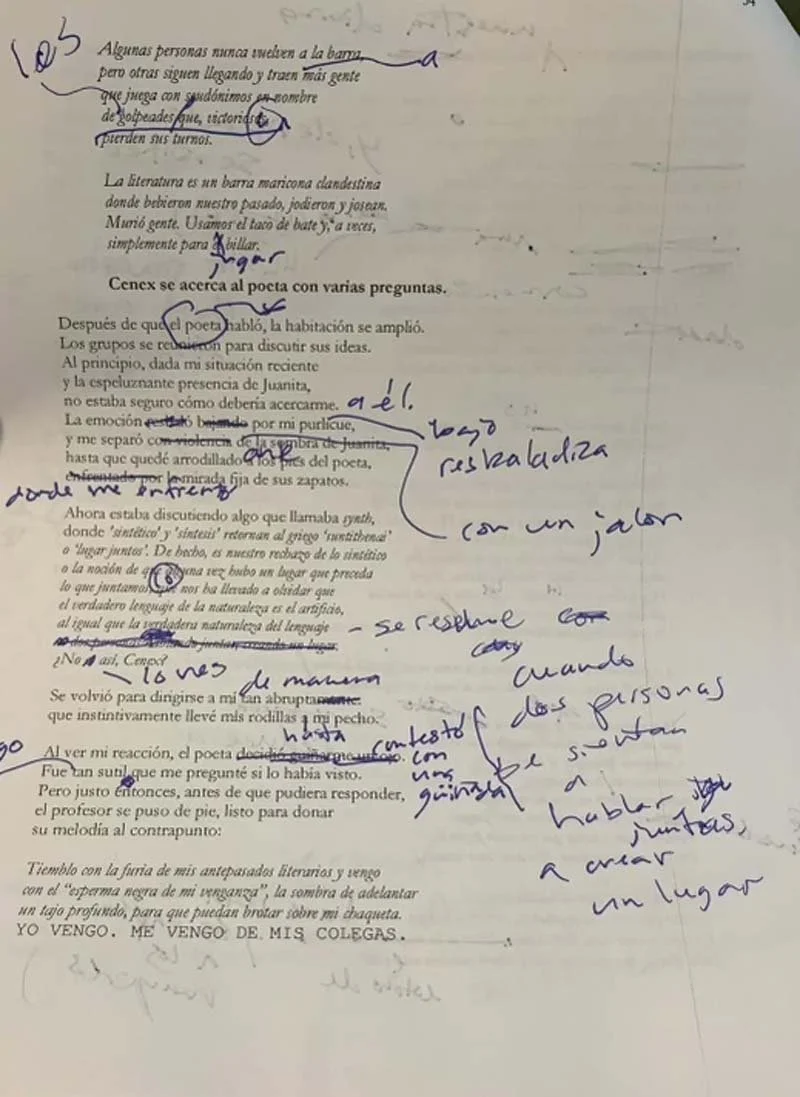 34
los
Algunas personas nunca vuelven a la barra, a
pero otras siguen llegando y traen más gente
que juega con seudónimos en nombre
de golpeades que, victorios
pierden sus turnos.
La literatura es un barra maricona clandestina
donde bebieron nuestro pasado, jodieron y josean.
Murió gente. Usamos el taco de bate y, a veces,
simplemente para billar.
jugar
Cenex se acerca al poeta con varias preguntas.
Después de que el poeta habló, la habitación se amplió.
Los grupos se reunieron para discutir sus ideas.
Al principio, dada mi situación reciente
y la espeluznante presencia de Juanita,
no estaba seguro cómo debería acercarme. a él.
La emoción bajando por mi purlicue, bajó
resbaladiza
y me separó con violencia de la sombra de Juanita,
con un jalon
hasta que quedé arrodillado a los pies del poeta, ante
enfrentado por la mirada fija de sus zapatos.
donde me enfrentó
Ahora estaba discutiendo algo que llamaba synth,
donde 'sintético' y 'síntesis' retornan al griego 'suntithenai'
o 'lugar juntos'. De hecho, es nuestro rechazo de lo sintético
o la noción de que alguna vez hubo un lugar que preceda
lo que juntamos, que nos ha llevado a olvidar que
lo
el verdadero lenguaje de la naturaleza es el artificio,
al igual que la verdadera naturaleza del lenguaje
- se resuelve con
cuando
dos personas
se sientan
a
hablar
juntas,
a crear
un lugar
dos personas juntas, creando un lugar.
¿No así, Cenex?
lo ves
de manera
Se volvió para dirigirse a mí tan abruptamente
que instintivamente llevé mis rodillas a mi pecho.
hasta
Al ver mi reacción, el poeta decidió guiñarme un ojo.
contestó
con
una
guiñada
Fue tan sutil que me pregunté si lo había visto.
Pero justo entonces, antes de que pudiera responder,
el profesor se puso de pie, listo para donar
su melodía al contrapunto:
Tiemblo con la furia de mis antepasados literarios y vengo
con el "esperma negra de mi venganza", la sombra de adelantar
un tajo profundo, para que puedan brotar sobre mi chaqueta.
YO VENGO. ME VENGO DE MIS COLEGAS.